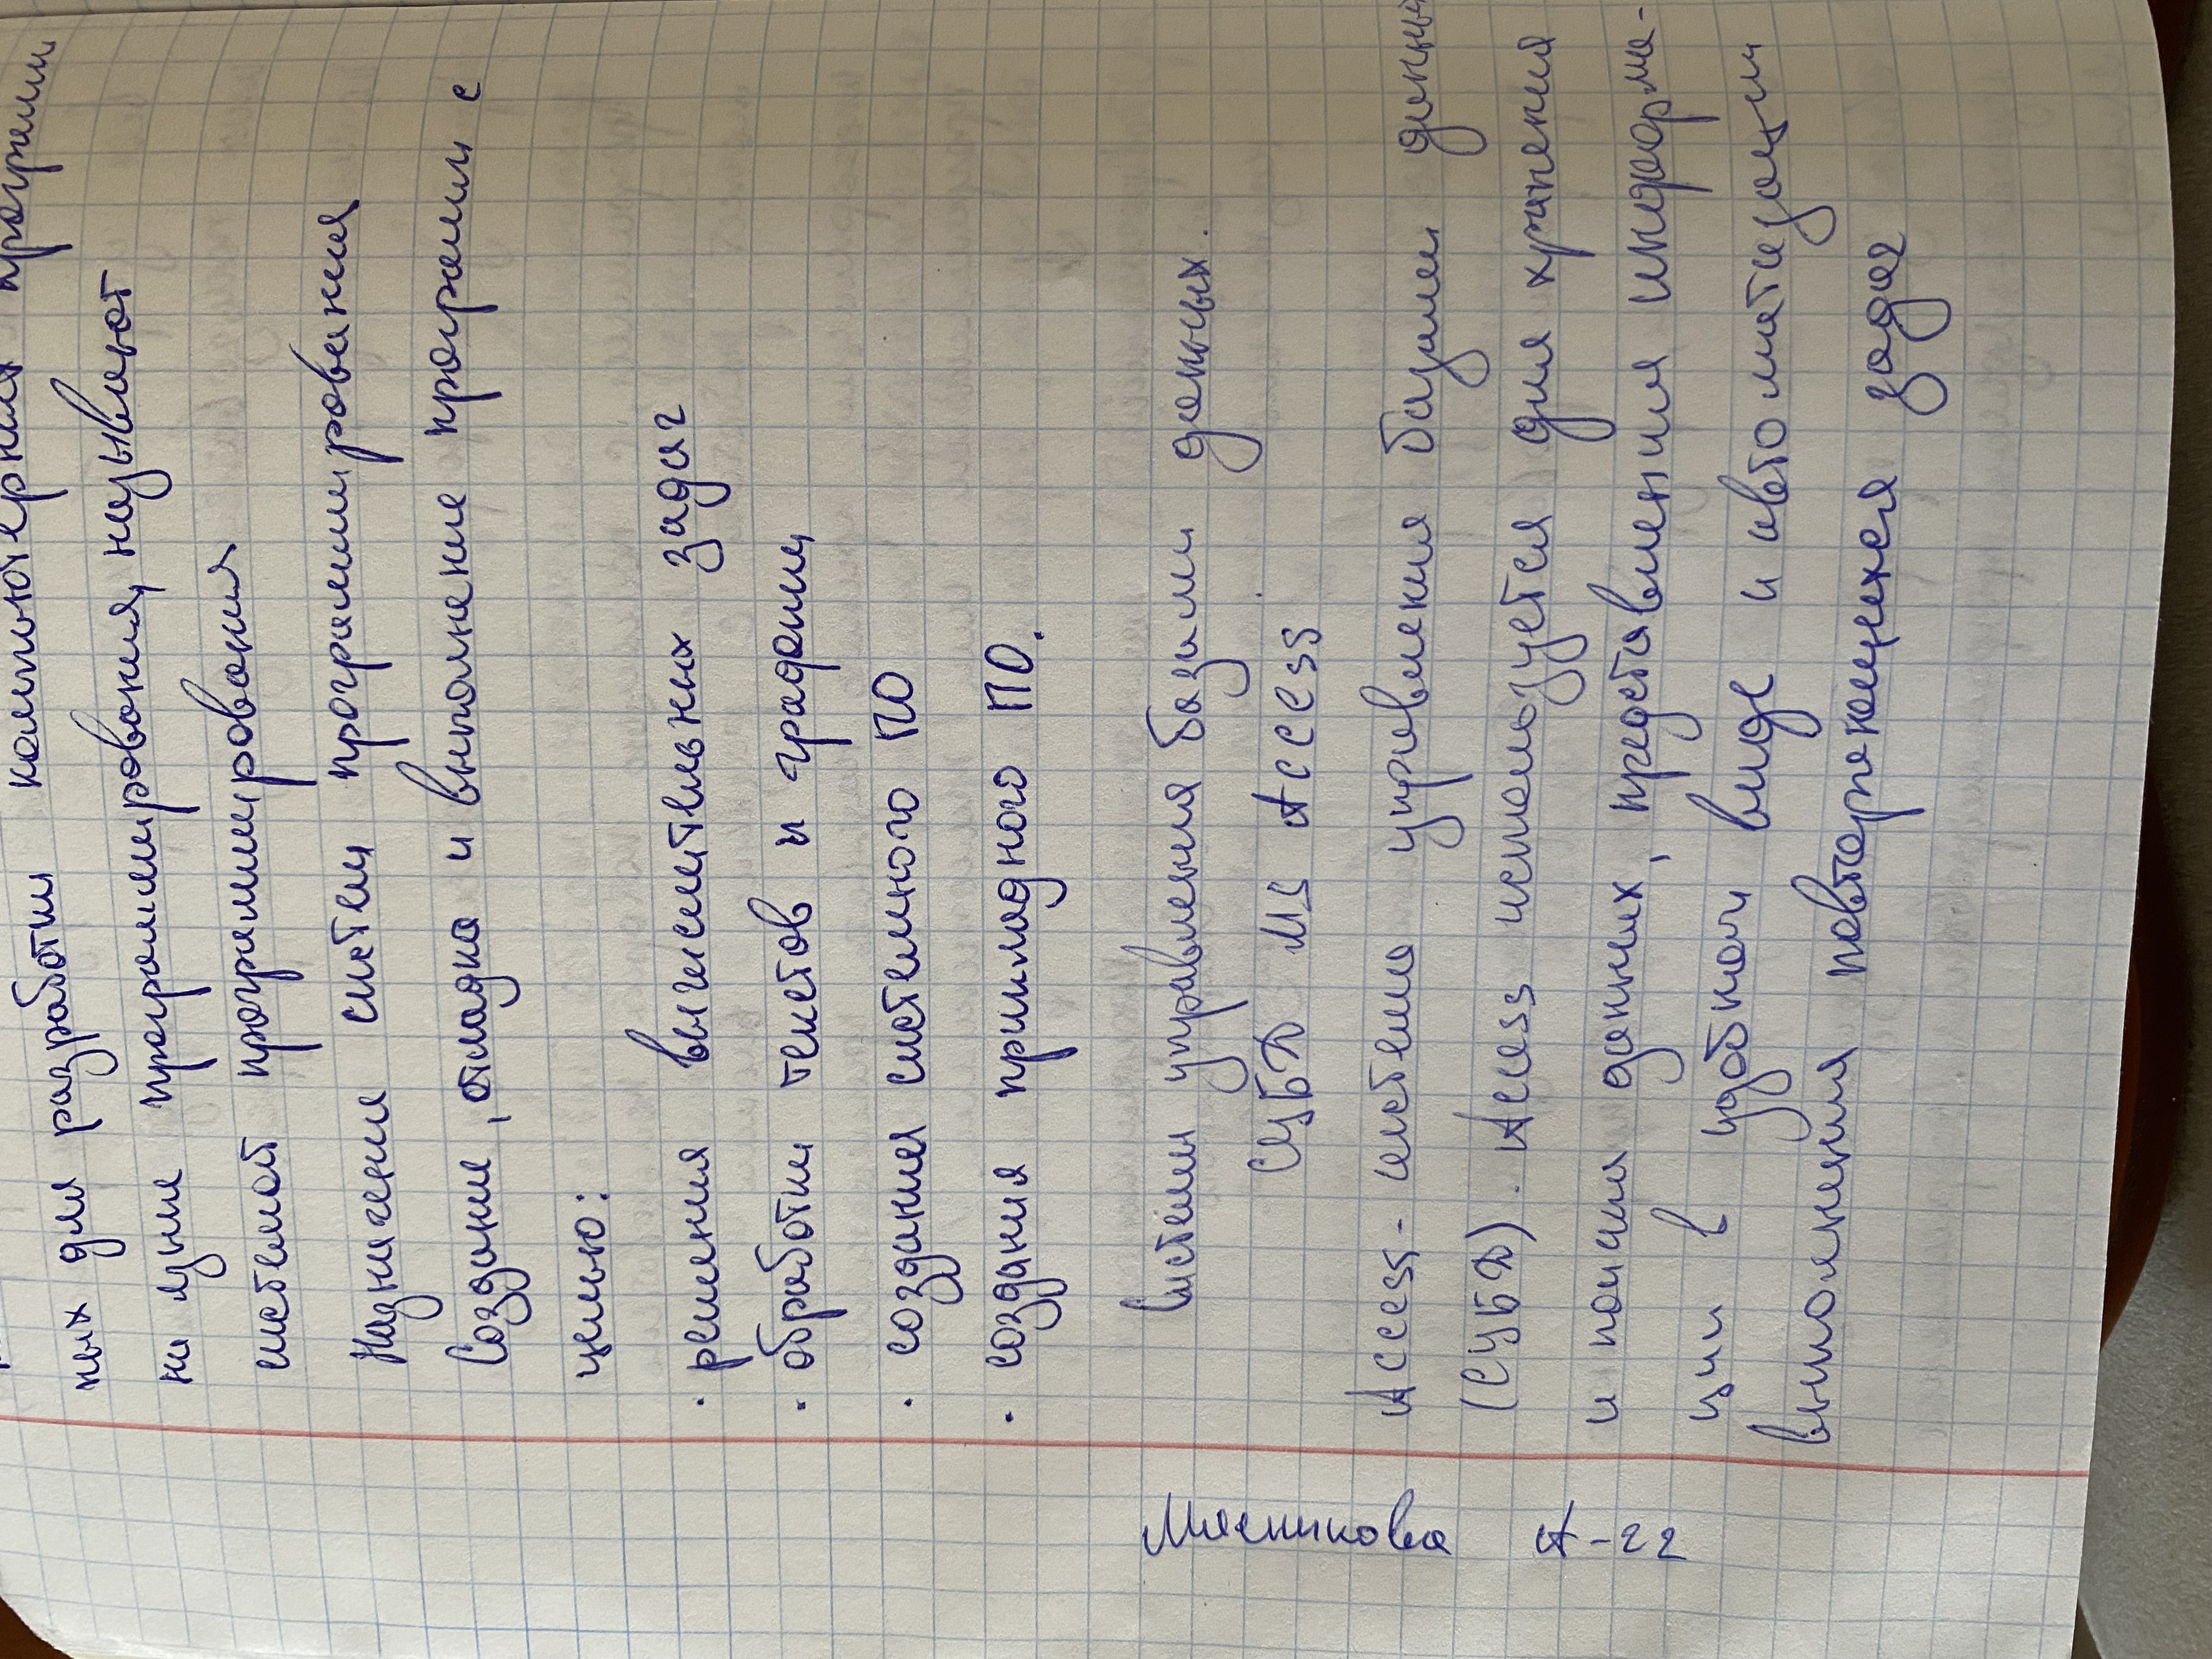 разработки компьютерных программ
ных для
на языке программирования, называют
системой программирования
Назначение систем программирования
Создание, отладка и выполнение программ с
целью:
· решения вычислительных задач
· обработки текстов и графики
· создания системного ПО
· создания прикладного ПО.
Системы управления базами данных.
СУБД MS Access
Access - система управления базами данных
(СУБД). Access используется для хранения
и поиска данных, представления информа-
ции в удобном виде и автоматизации
выполнения повторяющихся задач
Мясникова А-22